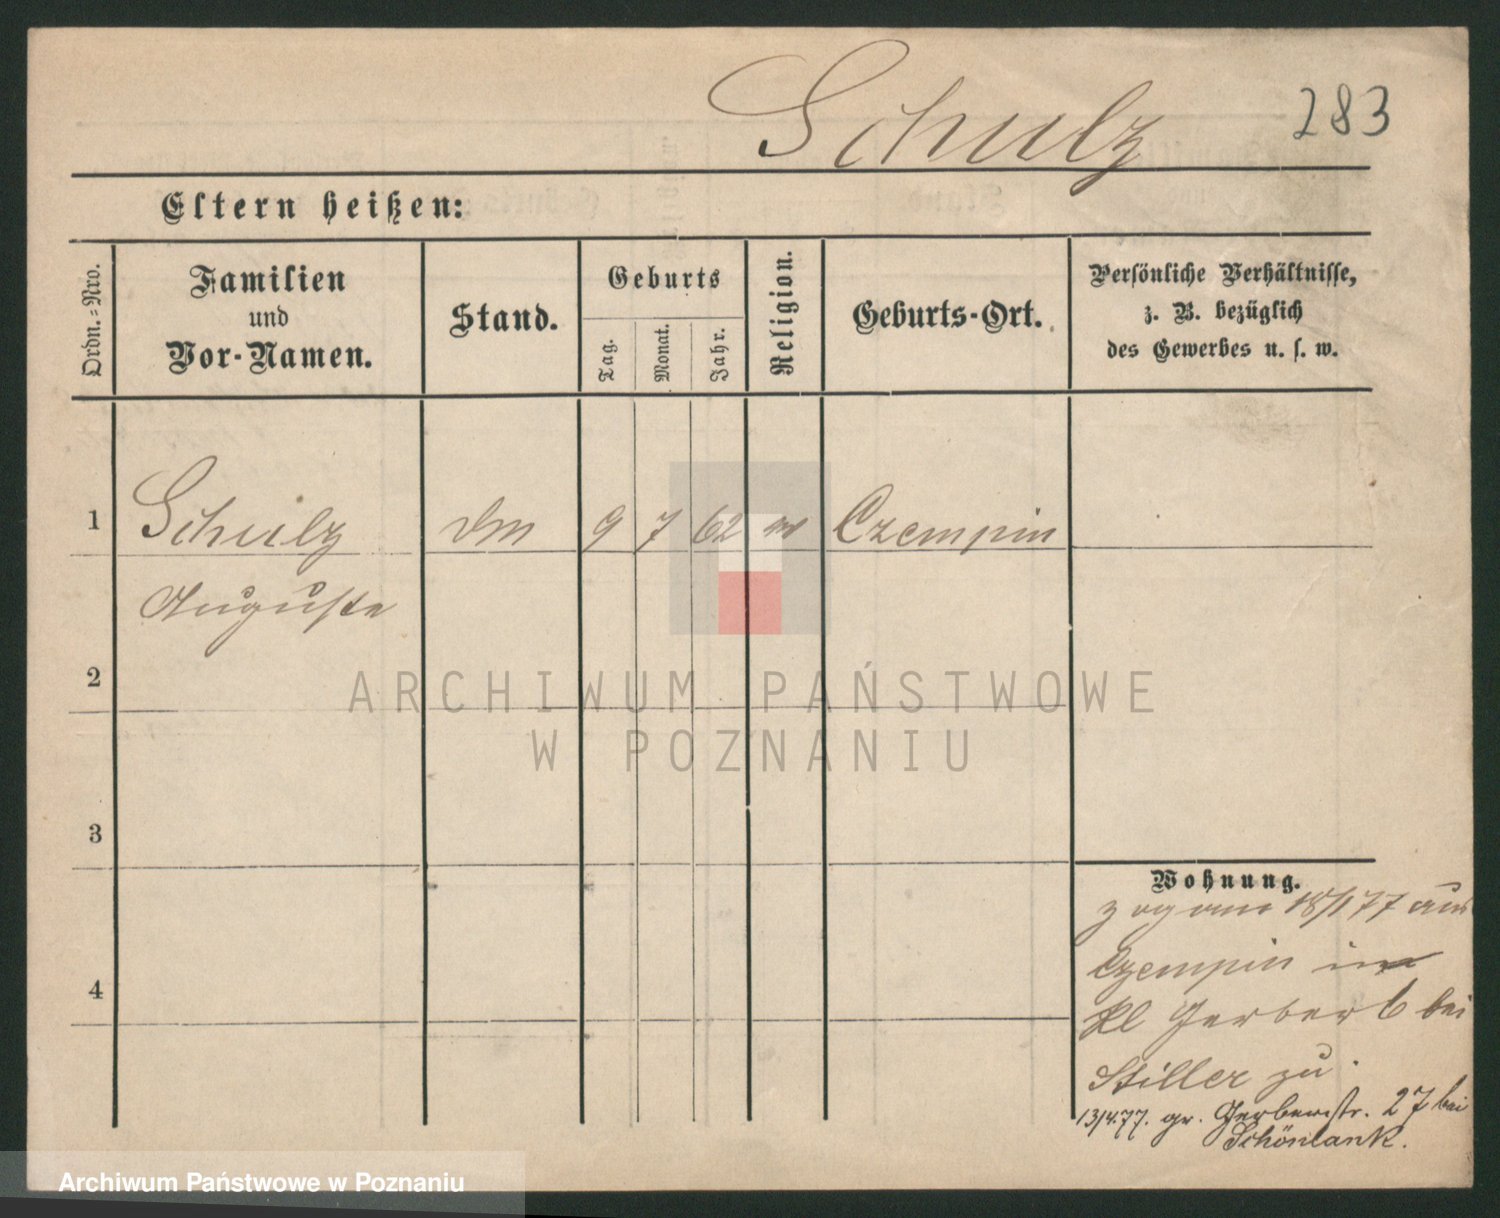 Schulz 283
Eltern heißen:
Ordn.-Nro.
Familien
und
Vor-Namen.
Stand.
Geburts
Tag.
Monat.
Jahr.
Religion.
Geburts-Ort.
Persönliche Verhältnisse,
z. B. bezüglich
des Gewerbes u. s. w.
1 Schulz 9 7 62 Czempin
Auguste
2
ARCHIWUM PAŃSTWOWE
W POZNANIU
3
4
Wohnung.
zog am 18/1 77 aus
Czempin
kl Gerber 6 bei
Stiller zu
13/4.77. gr. Gerberstr. 27 bei
Schönlank.
Archiwum Państwowe w Poznaniu